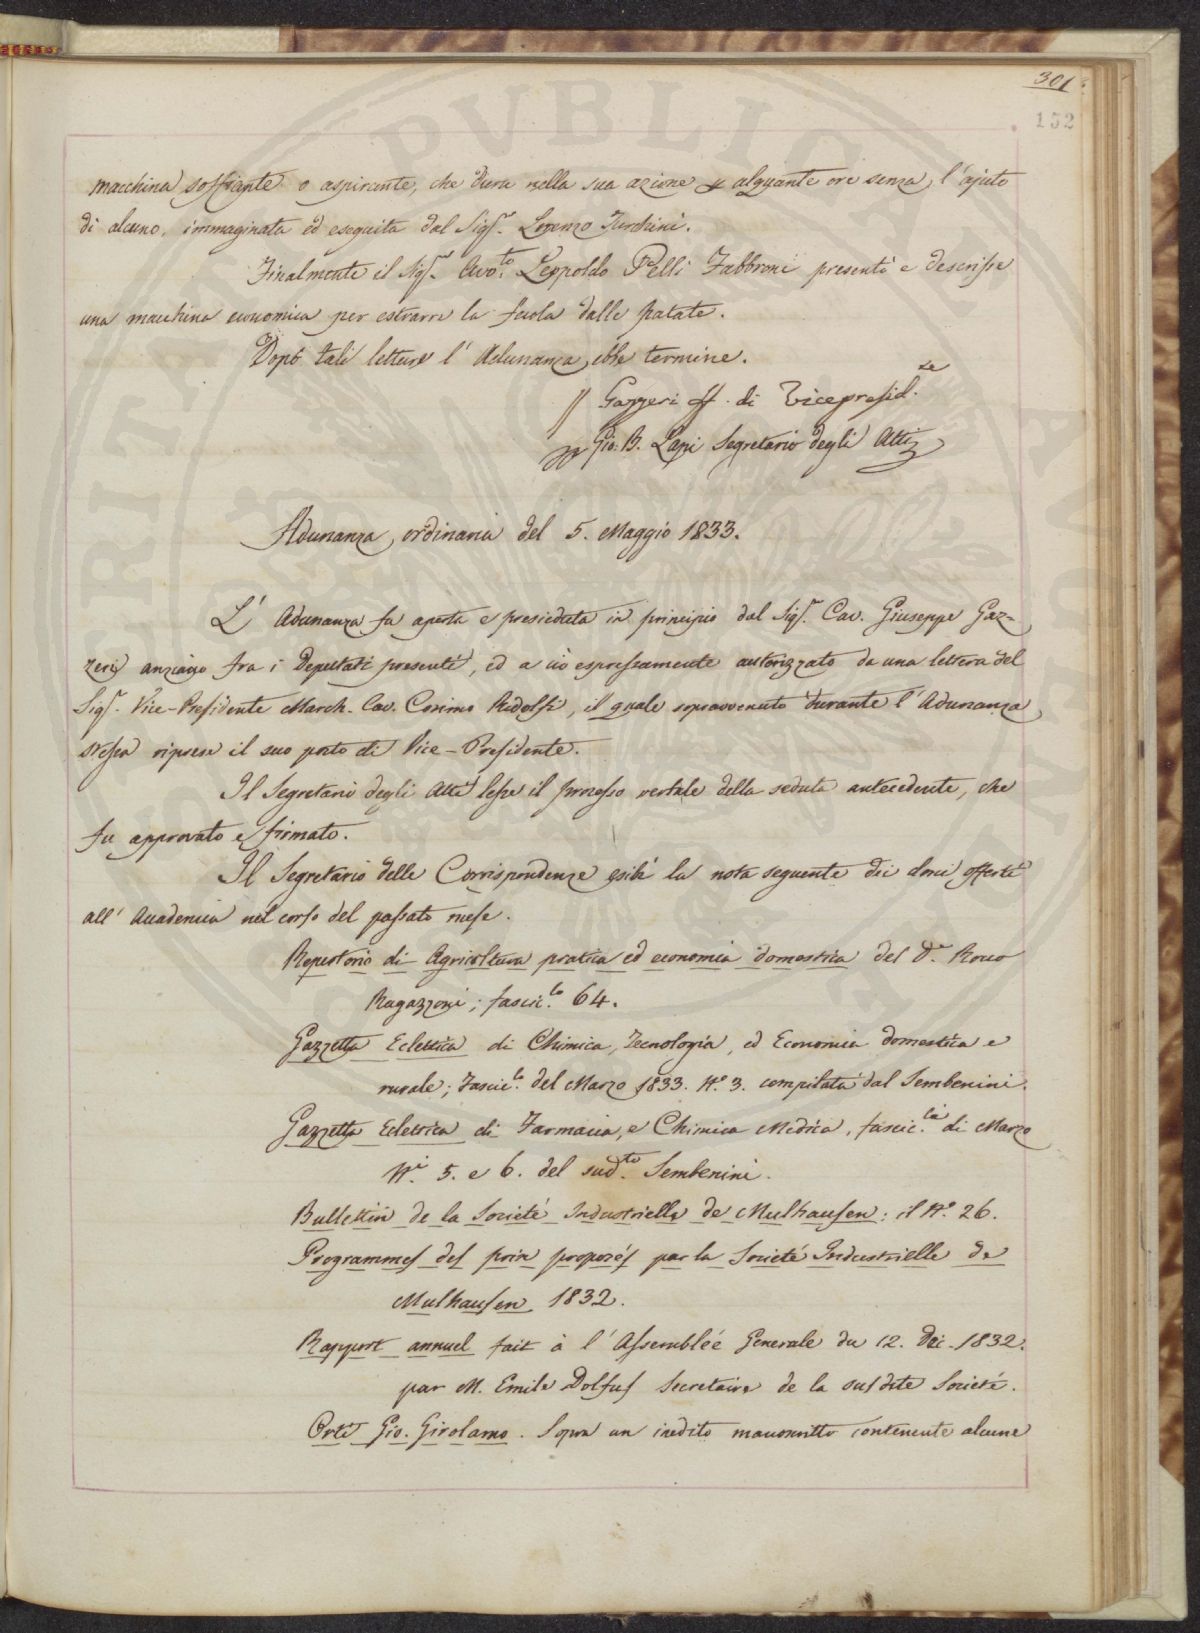 301
152
macchina soffiante o aspirante, che dura nella sua azione p alquante ore senza l'ajuto
di alcuno, immaginata ed eseguita dal Sigr. Lorenzo Turchini.
Finalmente il Sigr. Avvto. Leopoldo Pelli Fabbroni presentò e descrisse
una macchina economica per estrarre la fecola dalle patate.
Dopo tali letture l' Adunanza ebbe termine.
// Gazzeri ff. di Vicepresid.te
Gio. B. Lapi Segretario degli Atti
Adunanza ordinaria del 5. Maggio 1833.
L' Adunanza fu aperta e presieduta in principio dal Sigr. Cav. Giuseppe Gaz-
zeri anziano fra i Deputati presenti, ed a ciò espressamente autorizzato da una lettera del
Sigr. Vice-Presidente March. Cav. Cosimo Ridolfi, il quale sopravvenuto durante l' Adunanza
stessa riprese il suo posto di Vice-Presidente.
Il Segretario degli Atti lesse il processo verbale della seduta antecedente, che
fu approvato e firmato.
Il Segretario delle Corrispondenze esibì la nota seguente dei doni offerti
all' Accademia nel corso del passato mese.
Repertorio di Agricoltura pratica ed economia domestica del Dr. Rocco
Ragazzoni; fascic.lo 64.
Gazzetta Eclettica di Chimica, Tecnologia, ed Economia domestica e
rurale; Fascic.lo del Marzo 1833. No. 3. compilata dal Sembenini.
Gazzetta Eclettica di Farmacia, e Chimica Medica, fascic.li di Marzo
Ni. 5. e 6. del sudto. Sembenini.
Bullettin de la Societé Industrielle de Mulhausen: il No. 26.
Programmes des prix proposés par la Societé Industrielle de
Mulhausen 1832.
Rapport annuel fait à l' Assemblée Generale du 12. Dec. 1832.
par M. Emile Dolfus Secretaire de la susdite Societé.
Orti Gio. Girolamo. Sopra un inedito manoscritto contenente alcune